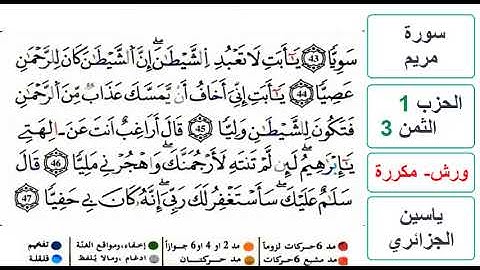 سَوِيّٗا 43 يَٰٓأَبَتِ لَا تَعْبُدِ اِ۬لشَّيْطَٰنَۖ إِنَّ اَ۬لشَّيْطَٰنَ كَانَ لِلرَّحْمَٰنِ
عَصِيّٗا 44 يَٰٓأَبَتِ إِنِّيَ أَخَافُ أَنْ يَّمَسَّكَ عَذَابٞ مِّنَ اَ۬لرَّحْمَٰنِ
فَتَكُونَ لِلشَّيْطَٰنِ وَلِيّٗا 45 قَالَ أَرَاغِبٌ اَنتَ عَنَ اٰلِهَتِے
يَٰٓإِبْرَٰهِيمُۖ لَئِن لَّمْ تَنتَهِ لَأَرْجُمَنَّكَۖ وَاهْجُرْنِے مَلِيّٗا 46 قَالَ
سَلَٰمٌ عَلَيْكَۖ سَأَسْتَغْفِرُ لَكَ رَبِّيَۖ إِنَّهُۥ كَانَ بِے حَفِيّٗا 47
مد 6 حركات لزوماً مد 2 أو 4 أو 6 جوازاً إخفاء، ومواقع الغنة تفخيم
مد مشبع 6 حركات مد حركتان ادغام، ومالا يُلفظ قلقلة
سورة
مريم
الحزب 1
الثمن 3
ورش- مكررة
ياسين
الجزائري